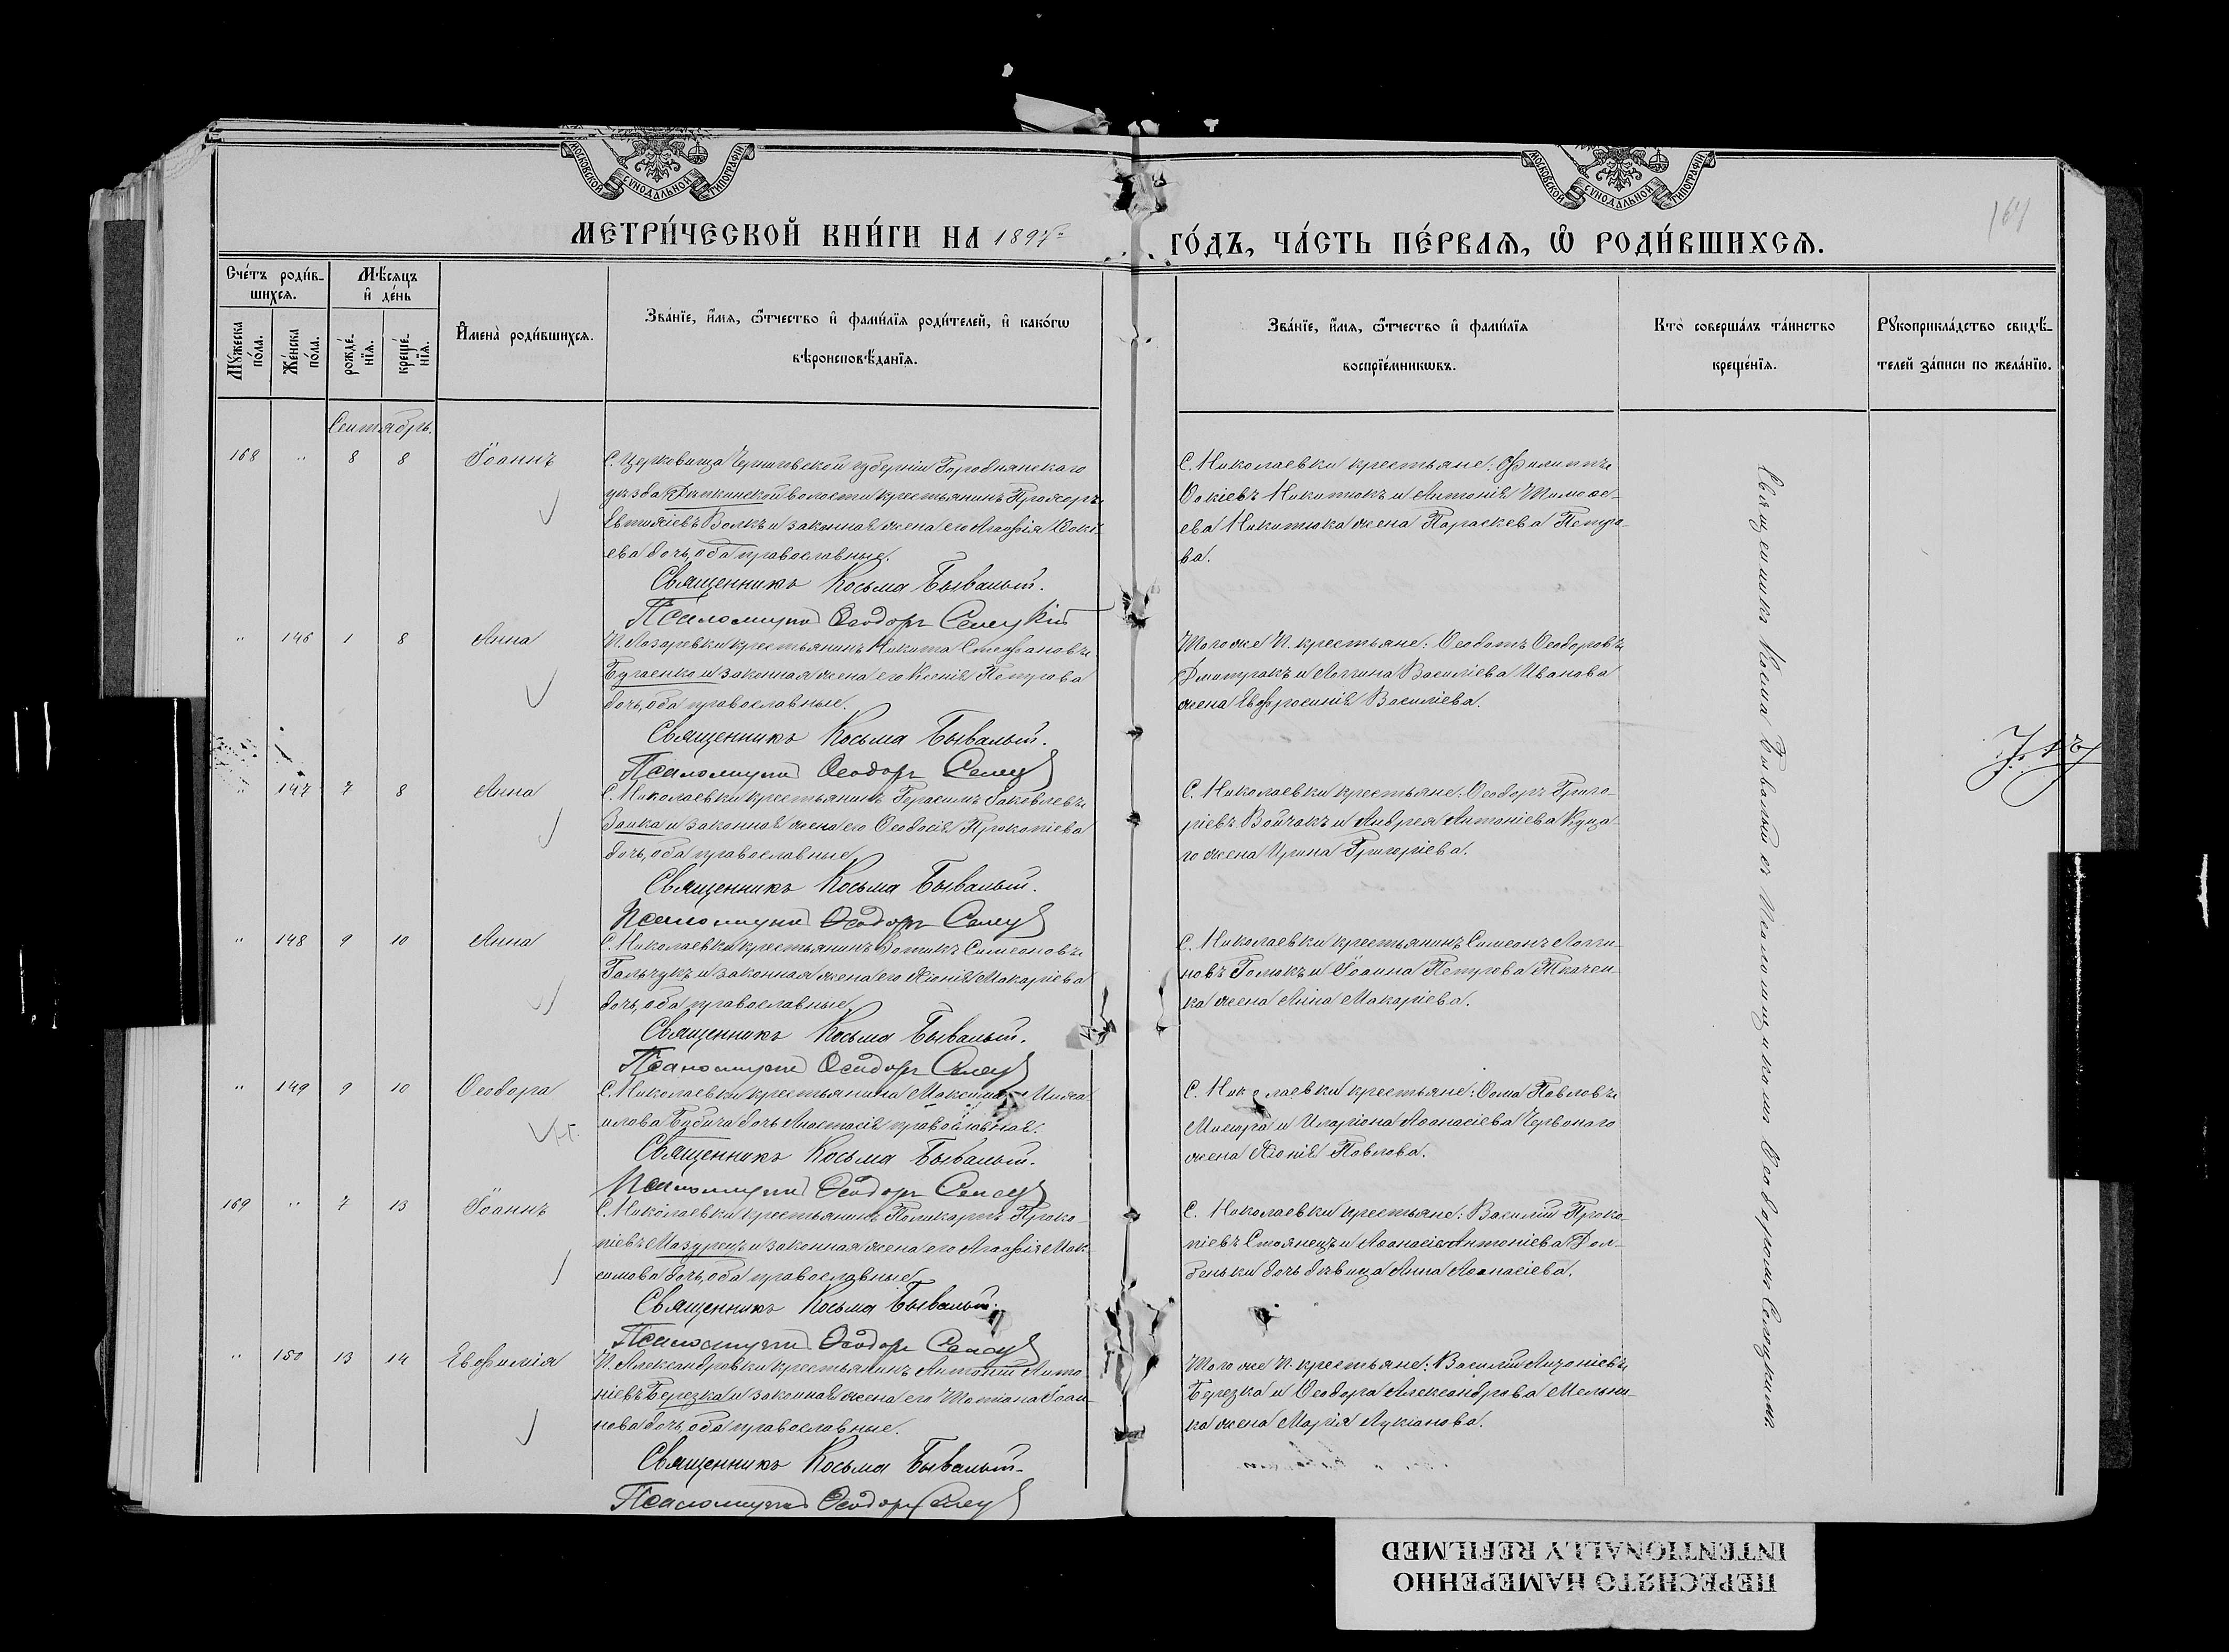 МОСКОВСКОЙ СѴНОДАЛЬНОЙ ТИПОГРАФІИ
МОСКОВСКОЙ СѴНОДАЛЬНОЙ ТИПОГРАФІИ
МЕТРИ́ЧЕСКОЙ КНИ́ГИ НА 1897 го́дъ, ча́сть пе́рваѧ, ѡ҆ роди́вшихсѧ.
Сче́тъ роди́в-
шихсѧ.
Мѣ́сѧцъ
и҆ де́нь
Мꙋ́жеска по́ла.
Же́нска по́ла.
рожде́-
нїѧ.
креще́-
нїѧ.
И҆мена̀ роди́вшихсѧ.
Зва́нїе, и҆́мѧ, ѻ҆́тчество и҆ фами́лїѧ роди́телей, и҆ како́гѡ
вѣроисповѣ́данїѧ.
Зва́нїе, и҆́мѧ, ѻ҆́тчество и҆ фами́лїѧ
воспрїе́мникѡвъ.
Кто̀ соверша́лъ та́инство
креще́нїѧ.
Рꙋкоприкла́дство свидѣ́-
телей за́писи по жела́нїю.
Сентябрь.
168 " 8 8 Іоаннъ
С. Церковища Черниговской губерніи Городнянскаго
уѣзда волости крестьянинъ Прохоръ
Евтихіевъ Волкъ и законная жена его Агафія Фокі-
ева дочь, оба православные.
Священникъ Косьма Бывалый.
Псаломщикъ Ѳеодоръ Селецкій
С. Николаевки крестьяне: Филиппъ
Фокіевъ Никитюкъ и Антонія Тимоѳе-
ева Никитюка жена Параскева Петро-
ва.
" 146 1 8 Анна
П. Лазаревки крестьянинъ Никита Стефановъ
Бугаенко и законная жена его Ксенія Петрова
дочь, оба православные.
Священникъ Косьма Бывалый.
Псаломщикъ Ѳеодоръ Селец
Того же П. крестьяне: Ѳеодотъ Ѳеодоровъ
Дмитракъ и Логгина Василіева Иванова
жена Евфросинія Василіева.
" 147 7 8 Анна
С. Николаевки крестьянинъ Герасимъ Іаковлевъ
Заика и законная жена его Ѳеодосія Прокопіева
дочь, оба православные
Священникъ Косьма Бывалый.
Псаломщикъ Ѳеодоръ Селец
С. Николаевки крестьяне: Ѳеодоръ Григо-
ріевъ Войчакъ и Андрея Антоніева Куца-
го жена Ирина Григоріева.
" 148 9 10 Анна
С. Николаевки крестьянинъ Зотикъ Симеоновъ
Гальчукъ и законная жена его Хіонія Макаріева
дочь, оба православные
Священникъ Косьма Бывалый.
Псаломщикъ Ѳеодоръ Селец
С. Николаевки крестьянинъ Симеонъ Логги-
новъ Гомакъ и Іоанна Петрова Ткачен-
ка жена Анна Макаріева.
" 149 9 10 Ѳеодора
С. Николаевки крестьянина Максима
дочь Анастасія православная.
Священникъ Косьма Бывалый.
Псаломщикъ Ѳеодоръ Селец
С. Николаевки крестьяне: Ѳома Павловъ
и Иларіона Аѳанасіева Червонаго
жена Хіонія Павлова.
169 " 7 13 Іоаннъ
С. Николаевки крестьянинъ Поликарпъ Проко-
піевъ Мазурецъ и законная жена его Агафія Мак-
симова дочь, оба православные
Священникъ Косьма Бывалый.
Псаломщикъ Ѳеодоръ Селец
С. Николаевки крестьяне: Василій Проко-
піевъ Стоянецъ и Аѳанасія Антоніева Дол-
беньки дочь дѣвица Анна Аѳанасіева.
" 150 13 14 Евфимія
П. Александровки крестьянинъ Антоній Анто-
ніевъ Березка и законная жена его Татіана Іоан-
нова дочь, оба православные.
Священникъ Косьма Бывалый.
Псаломщикъ Ѳеодоръ Селец
Того же П. крестьяне: Василій Антоніевъ
Березка и Ѳеодора Александрова Мельни-
ка жена Марія Лукіанова.
Священникъ Косьма Бывалый съ Псаломщикомъ Ѳеодоромъ Селецкимъ.
ПЕРЕСНЯТО НАМЕРЕННО
INTENTIONALLY REFILMED